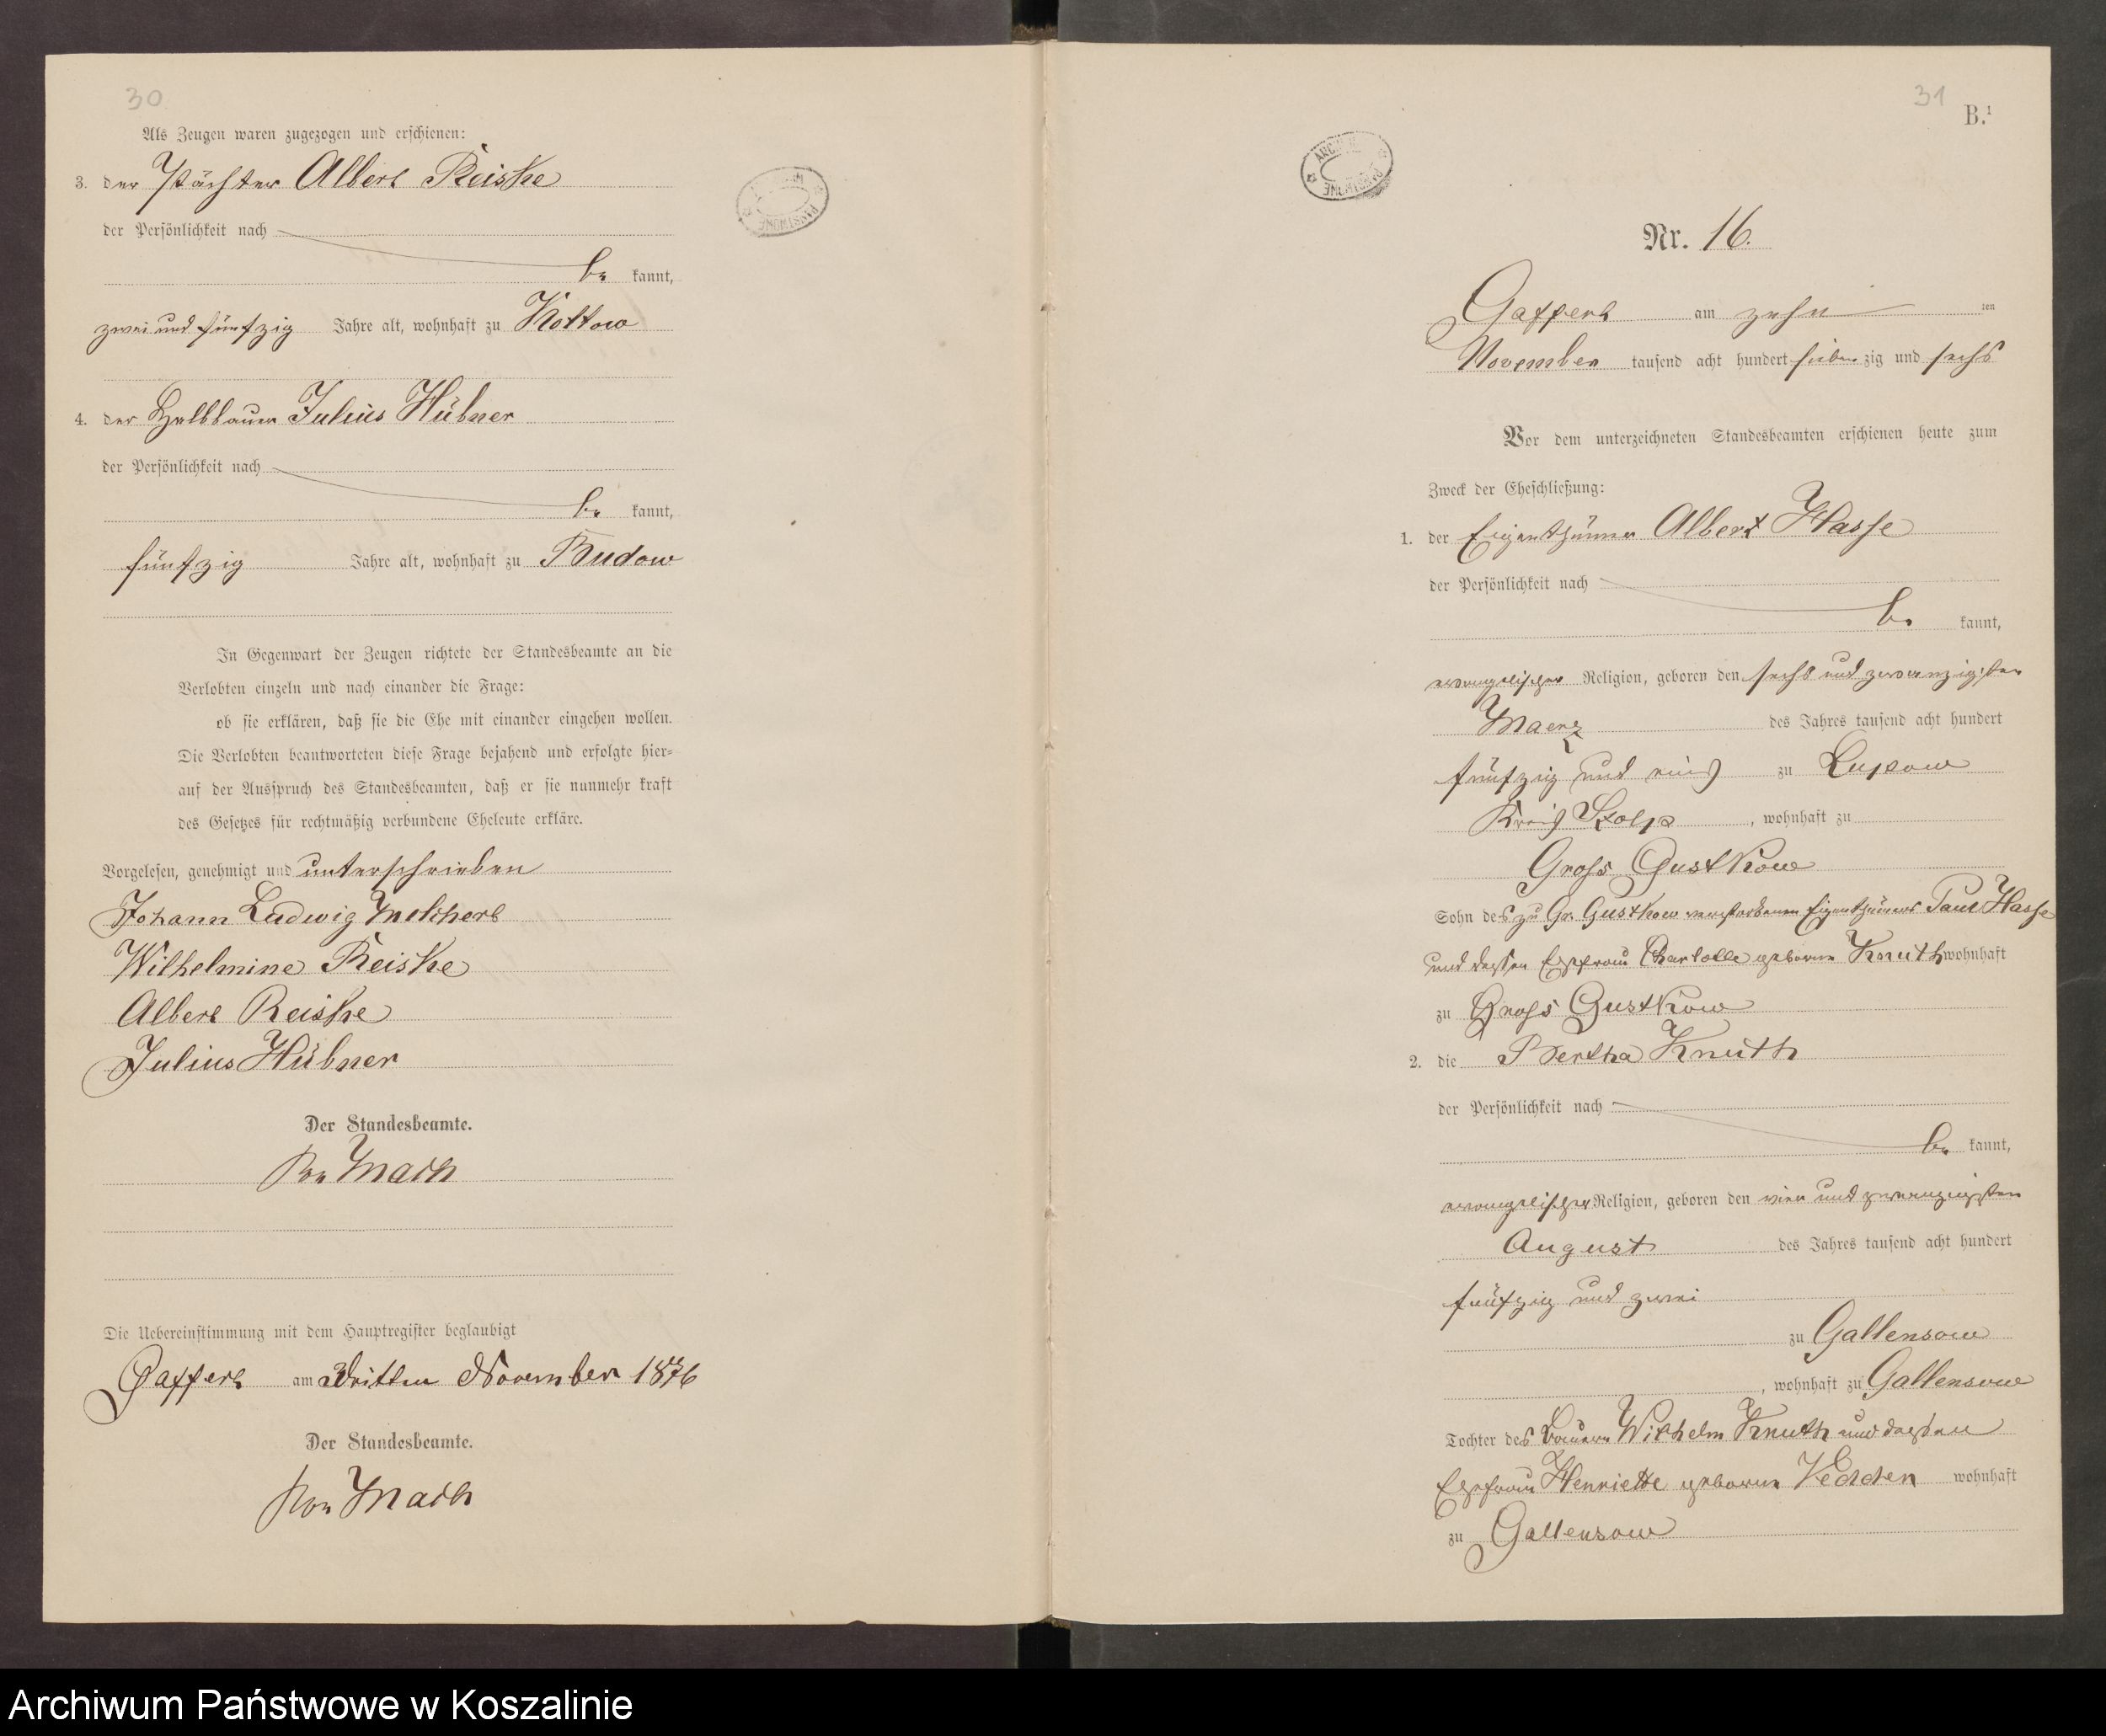 30
Als Zeugen waren zugezogen und erschienen:
3. der Pächter Albert Reiske
der Persönlichkeit nach
be kannt,
zwei und fünfzig Jahre alt, wohnhaft zu Kottow
4. der Halbbauer Julius Hübner
der Persönlichkeit nach
be kannt,
fünfzig Jahre alt, wohnhaft zu Budow
In Gegenwart der Zeugen richtete der Standesbeamte an die
Verlobten einzeln und nach einander die Frage:
ob sie erklären, daß sie die Ehe mit einander eingehen wollen.
Die Verlobten beantworteten diese Frage bejahend und erfolgte hier=
auf der Ausspruch des Standesbeamten, daß er sie nunmehr kraft
des Gesetzes für rechtmäßig verbundene Eheleute erkläre.
Vorgelesen, genehmigt und unterschrieben
Johann Ludwig Melchert
Wilhelmine Reiske
Albert Reiske
Julius Hübner
Der Standesbeamte.
Von Mach
Die Uebereinstimmung mit dem Hauptregister beglaubigt
Gaffert am dritten November 1876
Der Standesbeamte.
Von Mach
31
B.¹
ARCHIWUM PAŃSTWOWE
Nr. 16.
Gaffert am zehn ten
November tausend acht hundert sieben zig und sechs
Vor dem unterzeichneten Standesbeamten erschienen heute zum
Zweck der Eheschließung:
1. der Eigenthümer Albert Hasse
der Persönlichkeit nach
be kannt,
evangelischer Religion, geboren den sechs und zwanzigsten
Maerz des Jahres tausend acht hundert
fünfzig und eins zu Lupow
Kreis Stolp , wohnhaft zu
Gross Gustkow
Sohn des zu Gr. Gustkow verstorbenen Eigenthümers Paul Hasse
und dessen Ehefrau Charlotte geborene Knuth wohnhaft
zu Gross Gustkow
2. die Bertha Knuth
der Persönlichkeit nach
be kannt,
evangelischer Religion, geboren den vier und zwanzigsten
August des Jahres tausend acht hundert
fünfzig und zwei
zu Gallensow
, wohnhaft zu Gallensow
Tochter des Bauern Wilhelm Knuth und dessen
Ehefrau Henriette geborene Vedden wohnhaft
zu Gallensow
Archiwum Państwowe w Koszalinie